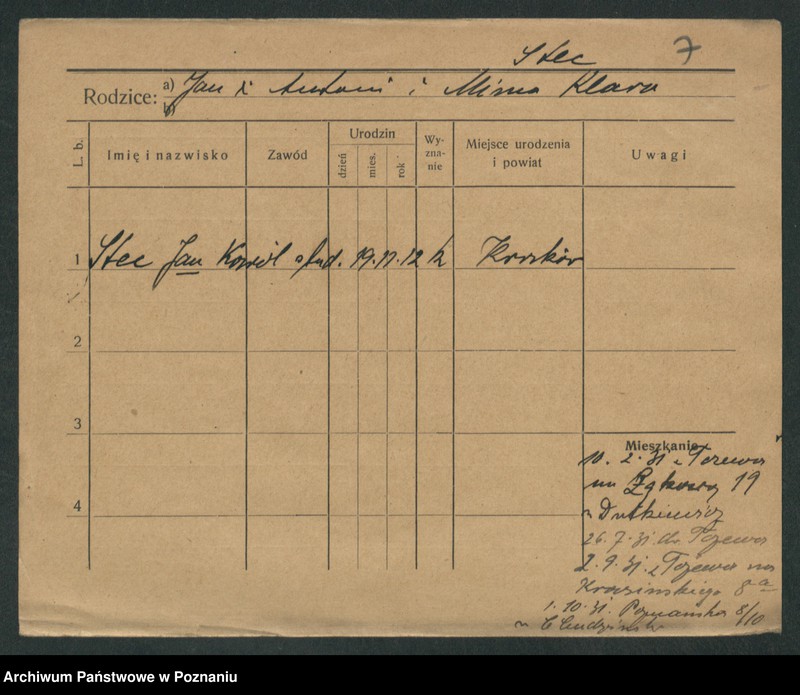 Stec 7
Rodzice: a) Jan i Antoni i Mima Klara
b)
L. b. Imię i nazwisko Zawód Urodzin dzień mies. rok Wy-zna-nie Miejsce urodzenia i powiat Uwagi
1 Stec Jan Karol stud. 19. 11. 12 k Kraków
2
3
Mieszkanie
10. 2. 31 z Tczewa
na 19
4
u Dutkiewicz
26. 7. 31. do Tczewa
2. 9. 31. z Tczewa na
Krasińskiego 8a
1. 10. 31. Poznańska 8/10
u
Archiwum Państwowe w Poznaniu